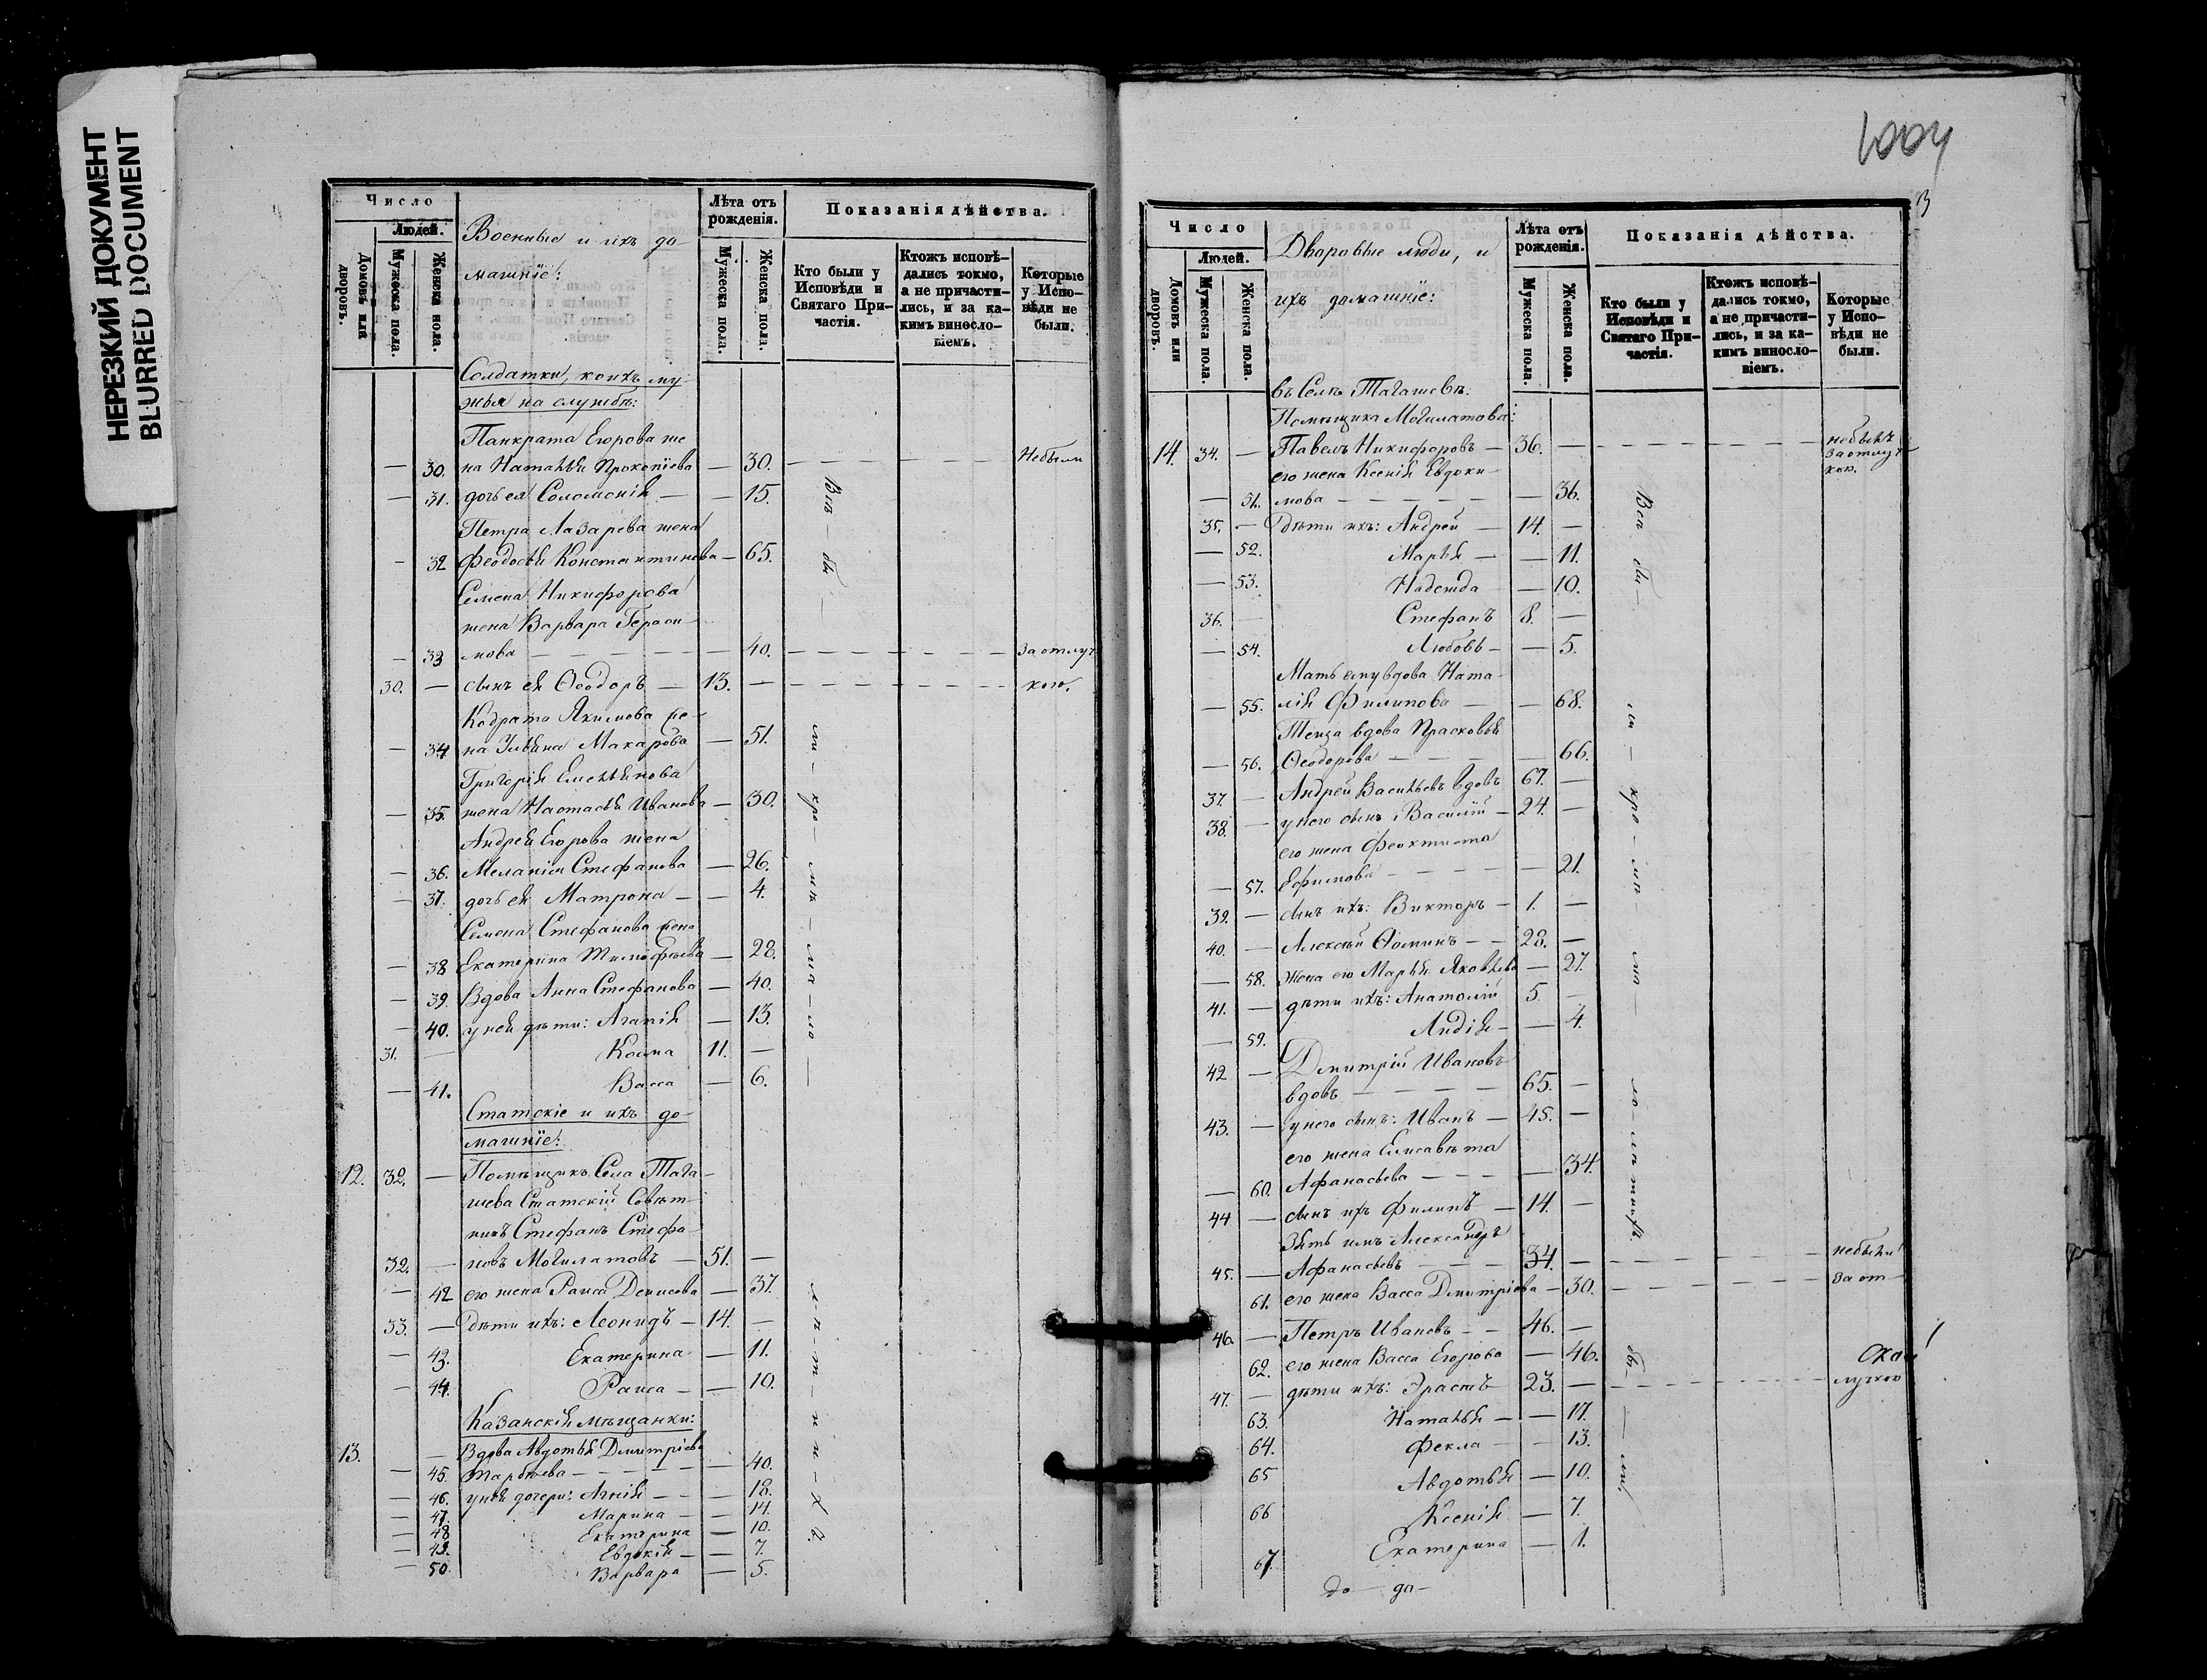 НЕРЕЗКИЙ ДОКУМЕНТ
BLURRED DOCUMENT
Число
Людей.
Домовъ или дворовъ.
Мужеска пола.
Женска пола.
Военные и ихъ до-
машніе:
Лѣта отъ рожденія.
Мужеска пола.
Женска пола.
Показанія дѣйства.
Кто были у Исповѣди и Святаго При-частія.
Ктожъ исповѣ-дались токмо, а не причасти-лись, и за ка-кимъ винослo-віемъ.
Которые у Испо-вѣди не были.
Солдатки, коихъ му-
жья на службѣ:
Панкрата Егорова же
— 30. на Наталья Прокопіева — 30. Небыли
— 31. дочь ея Соломонія — — 15.
Петра Лазарева жена
— 32 Феодосья Константинова — 65.
Семена Никифорова
жена Варвара Гераси-
— 33 мова — 40. За отлуч
30. — сынъ ея Ѳеодоръ — 13. — кою.
Кодрата Якимова же-
— 34 на Ульяна Макарова — 51.
Григорія Емельянова
— 35. жена Настасья Иванова — 30.
Андрея Егорова жена
— 36. Меланія Стефанова — 26.
— 37. дочь ея Матрона — — 4.
Семена Стефанова жена
— 38 Екатерина Тимофѣева — 28.
— 39. Вдова Анна Стефанова — 40.
— 40. у ней дѣти: Агапія — 13.
31. — Косма 11. —
— 41. Васса — 6.
Статскіе и ихъ до-
машніе:
12. 32. — Помѣщикъ Села Тага-
шева Статскій Совѣт-
никъ Стефанъ Стефа-
32. — новъ Могилатовъ — 51. —
— 42 его жена Раиса Денисова — 37.
33. — Дѣти ихъ: Леонидъ — 14. —
— 43. Екатерина — 11.
— 44. Раиса — — 10.
Казанскія мѣщанки:
13. — Вдова Авдотья Дмитріева
— 45. — 40.
— 46. у ней дочери: Агнія — — 18.
— 47. Марина — — 14.
— 48 Екатерина — 10.
— 49. Евдокія — — 7.
— 50. Варвара — 5.
Всѣ — бы —
ли — кро — мѣ — ма — ло —
лѣ — т — ни — хъ.
1004
3
Число
Людей.
Домовъ или дворовъ.
Мужеска пола.
Женска пола.
Дворовые люди, и
ихъ домашніе:
Лѣта отъ рожденія.
Мужеска пола.
Женска пола.
Показанія дѣйства.
Кто были у Исповѣди и Святаго При-частія.
Ктожъ исповѣ-дались токмо, а не причасти-лись, и за ка-кимъ винослo-віемъ.
Которые у Испо-вѣди не были.
въ Селѣ Тагашевѣ.
Помѣщика Могилатова:
14. 34. — Павелъ Никифоровъ — 36. — небылъ
За отлуч
кою.
его жена Ксенія Евдоки-
— 51. мова — 36.
35. — Дѣти ихъ: Андрей — 14. —
— 52. Марья — — 11.
— 53. Надежда — 10.
36. — Стефанъ 8. —
— 54. Любовь — — 5.
Мать ему вдова Ната-
— 55. лія Филипова — — 68.
Теща вдова Прасковья
— 56. Ѳеодорова — 66.
37. — Андрей Васильевъ вдовъ 67. —
38. — у него сынъ Василій — 24. —
его жена Феоктиста
— 57. Ефимова — 21.
39. — сынъ ихъ: Викторъ — 1. —
40. — Алексѣй Ѳоминъ — — 28. —
— 58. Жена его Марья Яковлева — 27.
41. — дѣти ихъ: Анатолій 5. —
— 59. Лидія — — 4.
42 — Дмитрій Ивановъ
вдовъ — 65. —
43. — у него сынъ: Иванъ — 45. —
его жена Елисавѣта
— 60. Афанасьева — 34.
44 — сынъ ихъ Филипъ — 14. —
Зять имъ Александръ
45. — Афанасьевъ — 34. — небыли
61. его жена Васса Дмитріева — 30. За от-
46. — Петръ Ивановъ — — 46. —
62. его жена Васса Егорова — 46.
47. — дѣти ихъ: Эрастъ 23. — лучкою
63. Наталья — — 17.
64. Фекла — — 13.
65 Авдотья — 10.
66 Ксенія — 7.
67. Екатерина — 1.
Всѣ бы —
ли — кро — мѣ — ма —
ло лѣтнихъ.
до — до —